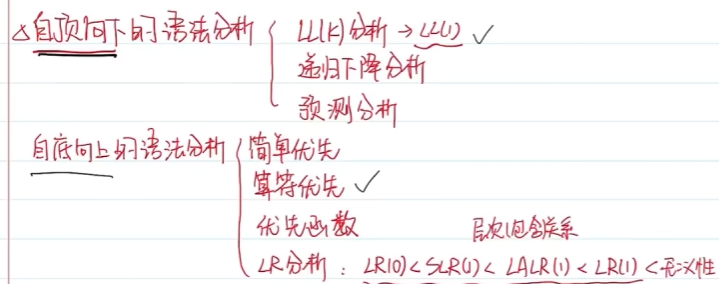 △自顶向下的语法分析 { LL(k)分析 → LL(1) ✓
递归下降分析
预测分析
自底向上的语法分析 { 简单优先
算符优先 ✓
优先函数 层次包含关系
LR分析：LR(0) < SLR(1) < LALR(1) < LR(1) < 无二义性